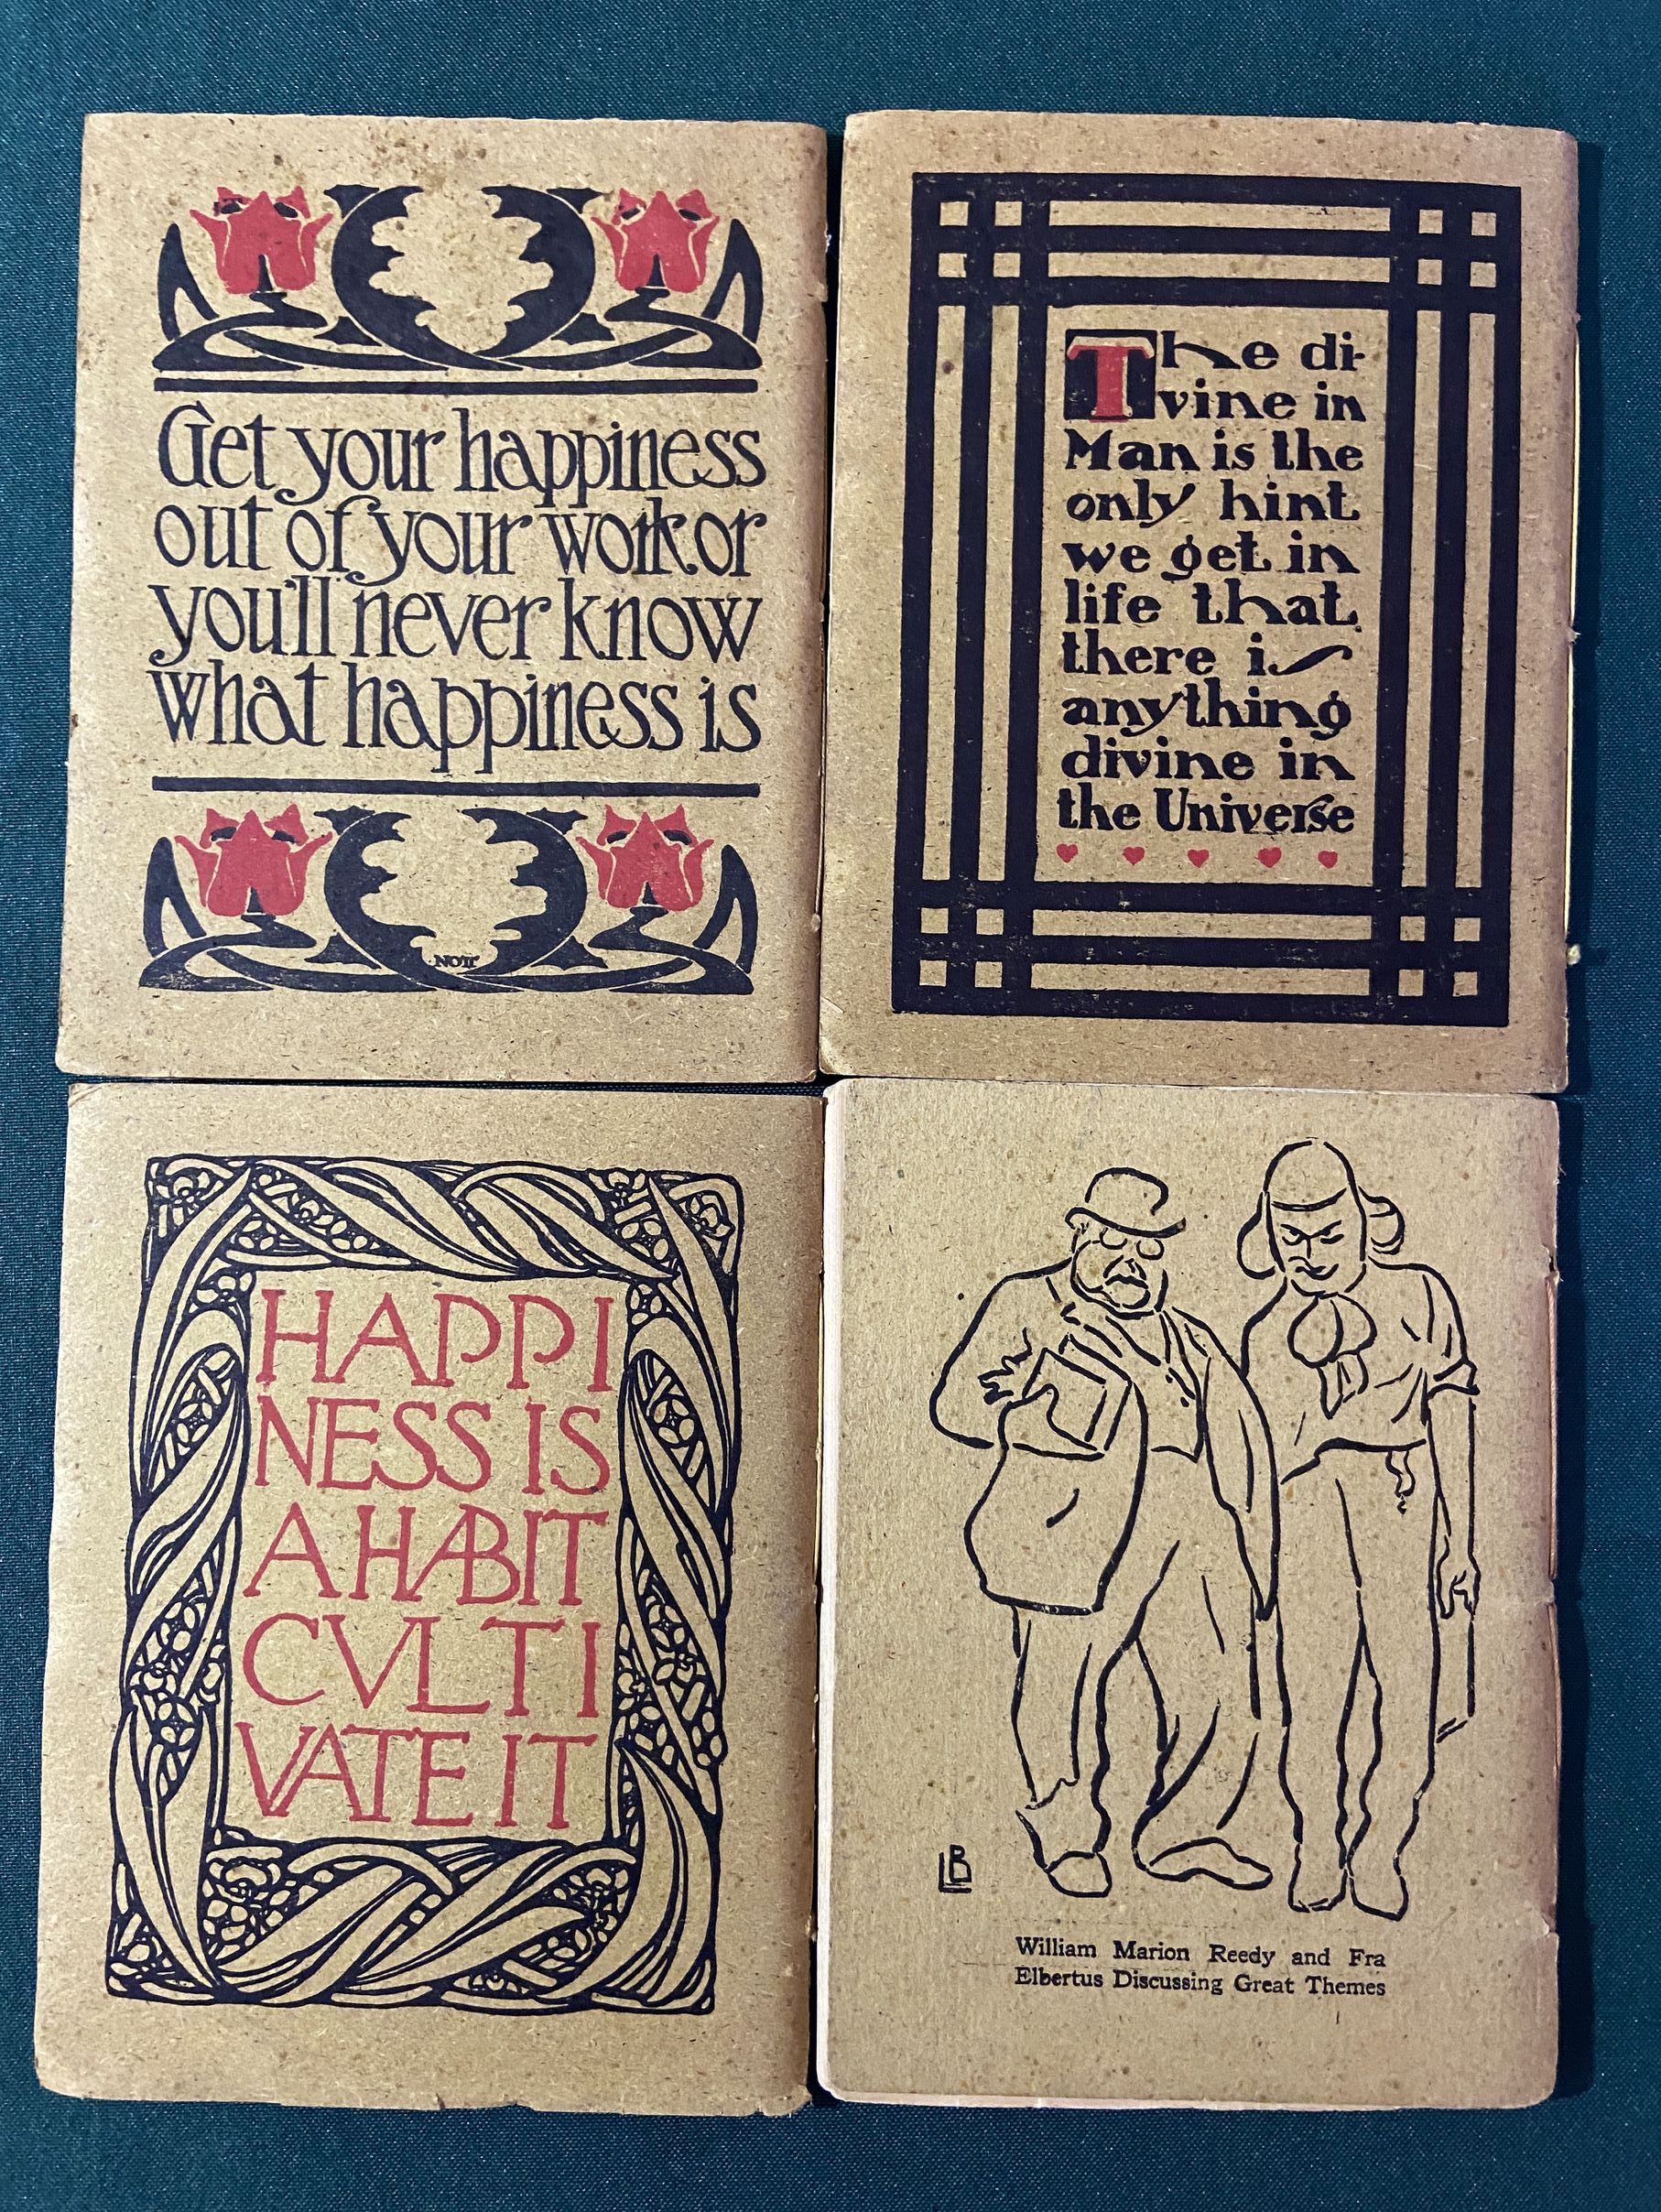 Get your happiness
out of your work or
you'll never know
what happiness is
The di-
vine in
Man is the
only hint
we get in
life that
there is
anything
divine in
the Universe
HAPPI
NESS IS
A HABIT
CVLTI
VATE IT
LB
William Marion Reedy and Fra
Elbertus Discussing Great Themes